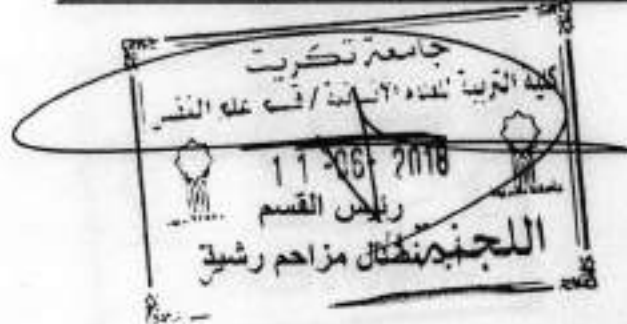 جامعة تكريت
كلية التربية للعلوم الانسانية / قسم علم النفس
11-06-2018
رئيس القسم
اللجنة نضال مزاحم رشيد